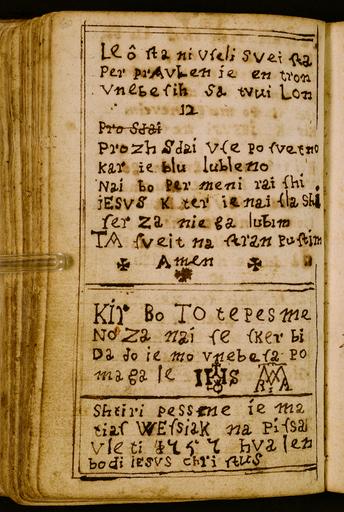 Le ô sta ni vseli svei sta
Per pravlen ie en tron
vnebesih sa tvui Lon
12
Pro Sdai
Prozh Sdai vse po svetno
kar ie blu lubleno
Nai bo per meni rai shi
iESVS K ter ie nai sla shi
ser za nie ga lubim
TA sveit na stran pustim
✠ Amen ✠
Kir Bo TO te pes me
No Za nai se sker bi
Da do ie mo vnebesa po
maga le IHS MARIA
Shtiri pessme ie ma
tias WEssiak na pissa
vle ti 1757 hvalen
bodi iESVS chri stus